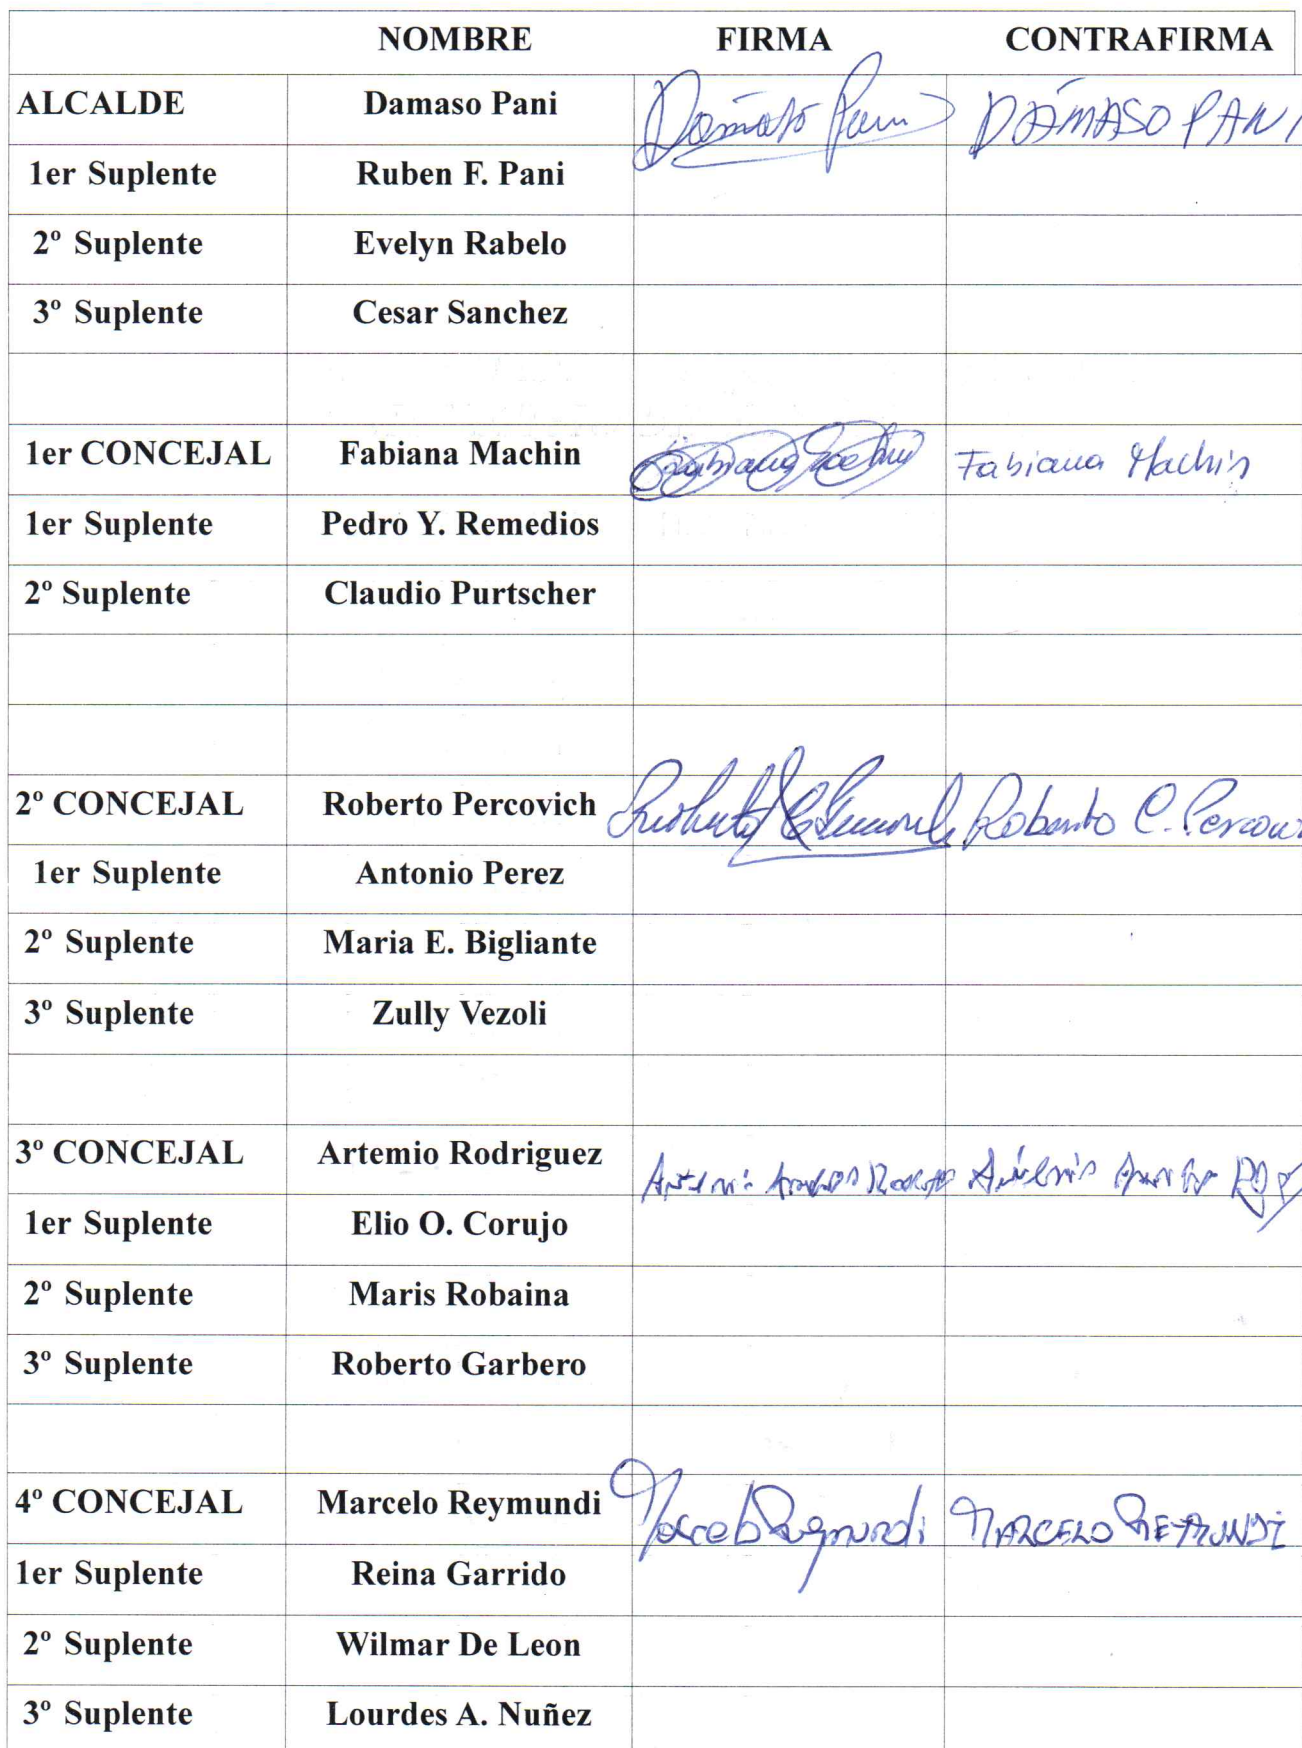 NOMBRE FIRMA CONTRAFIRMA
ALCALDE Damaso Pani Damaso Pani DAMASO PANI
1er Suplente Ruben F. Pani
2º Suplente Evelyn Rabelo
3º Suplente Cesar Sanchez
1er CONCEJAL Fabiana Machin Fabiana Machin Fabiana Machin
1er Suplente Pedro Y. Remedios
2º Suplente Claudio Purtscher
2º CONCEJAL Roberto Percovich Roberto C. Percovi
1er Suplente Antonio Perez
2º Suplente Maria E. Bigliante
3º Suplente Zully Vezoli
3º CONCEJAL Artemio Rodriguez
1er Suplente Elio O. Corujo
2º Suplente Maris Robaina
3º Suplente Roberto Garbero
4º CONCEJAL Marcelo Reymundi Marcelo Reymundi MARCELO REYMUNDI
1er Suplente Reina Garrido
2º Suplente Wilmar De Leon
3º Suplente Lourdes A. Nuñez